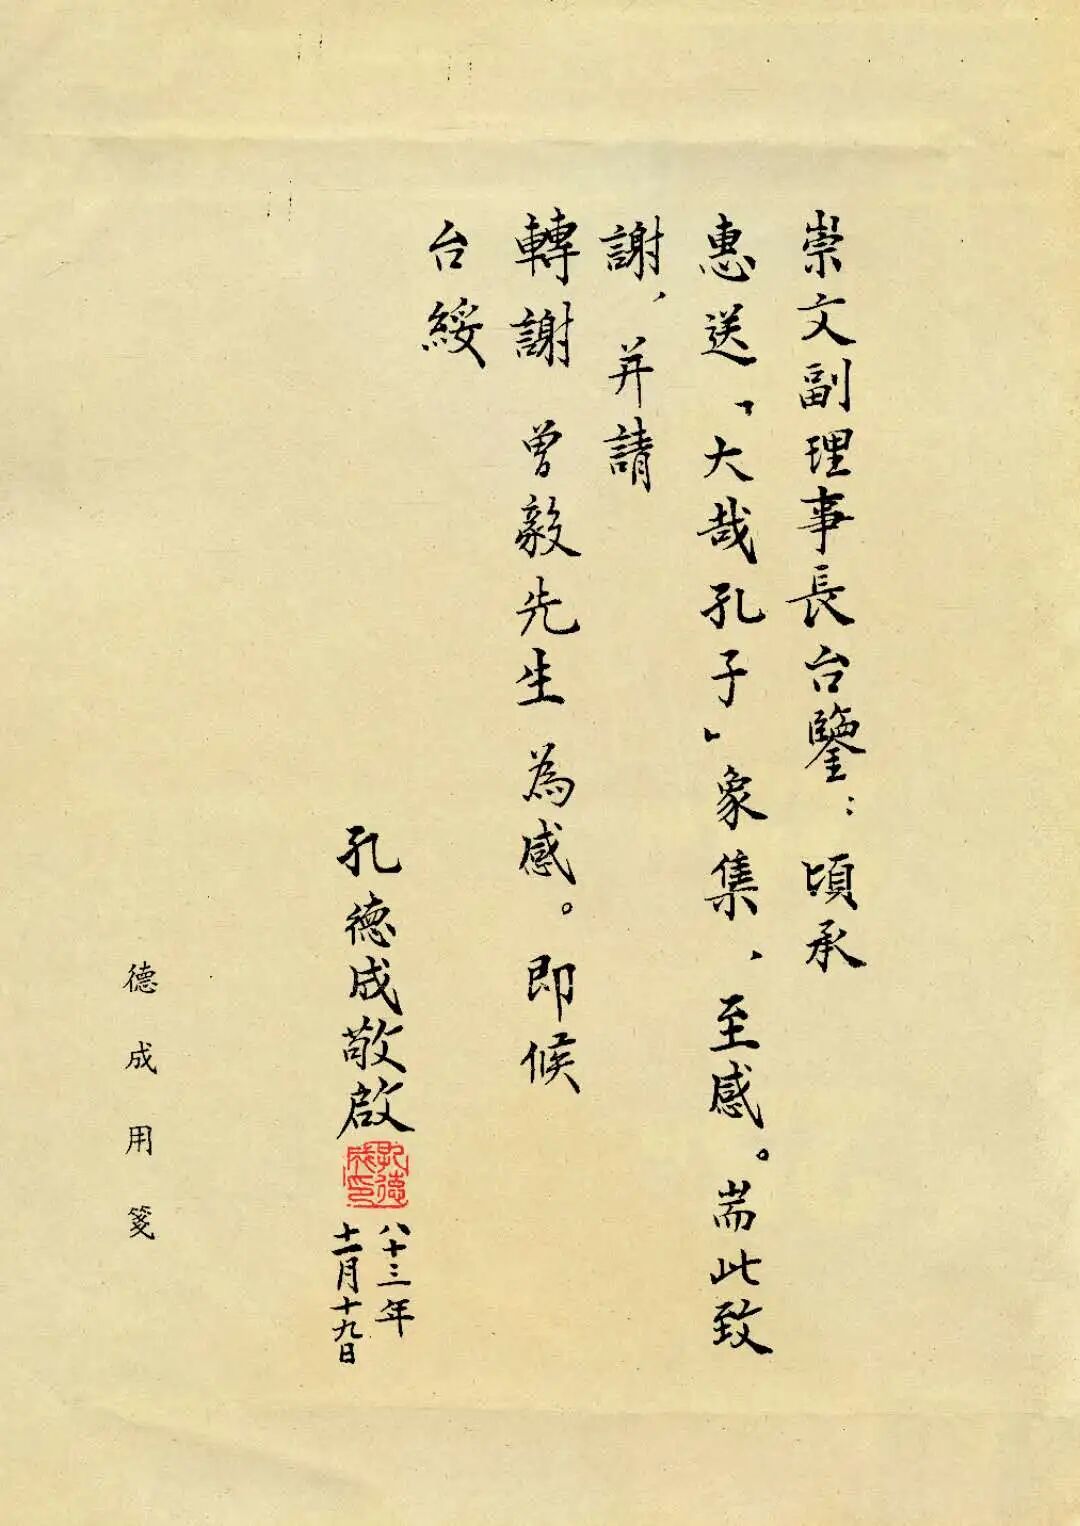 崇文副理事長台鑒：頃承
惠送「大哉孔子」象集、至感。耑此致
謝、并請
轉謝 曾毅先生為感。即候
台綏
孔德成敬啟
孔德成印
八十三年
十一月十九日
德成用箋